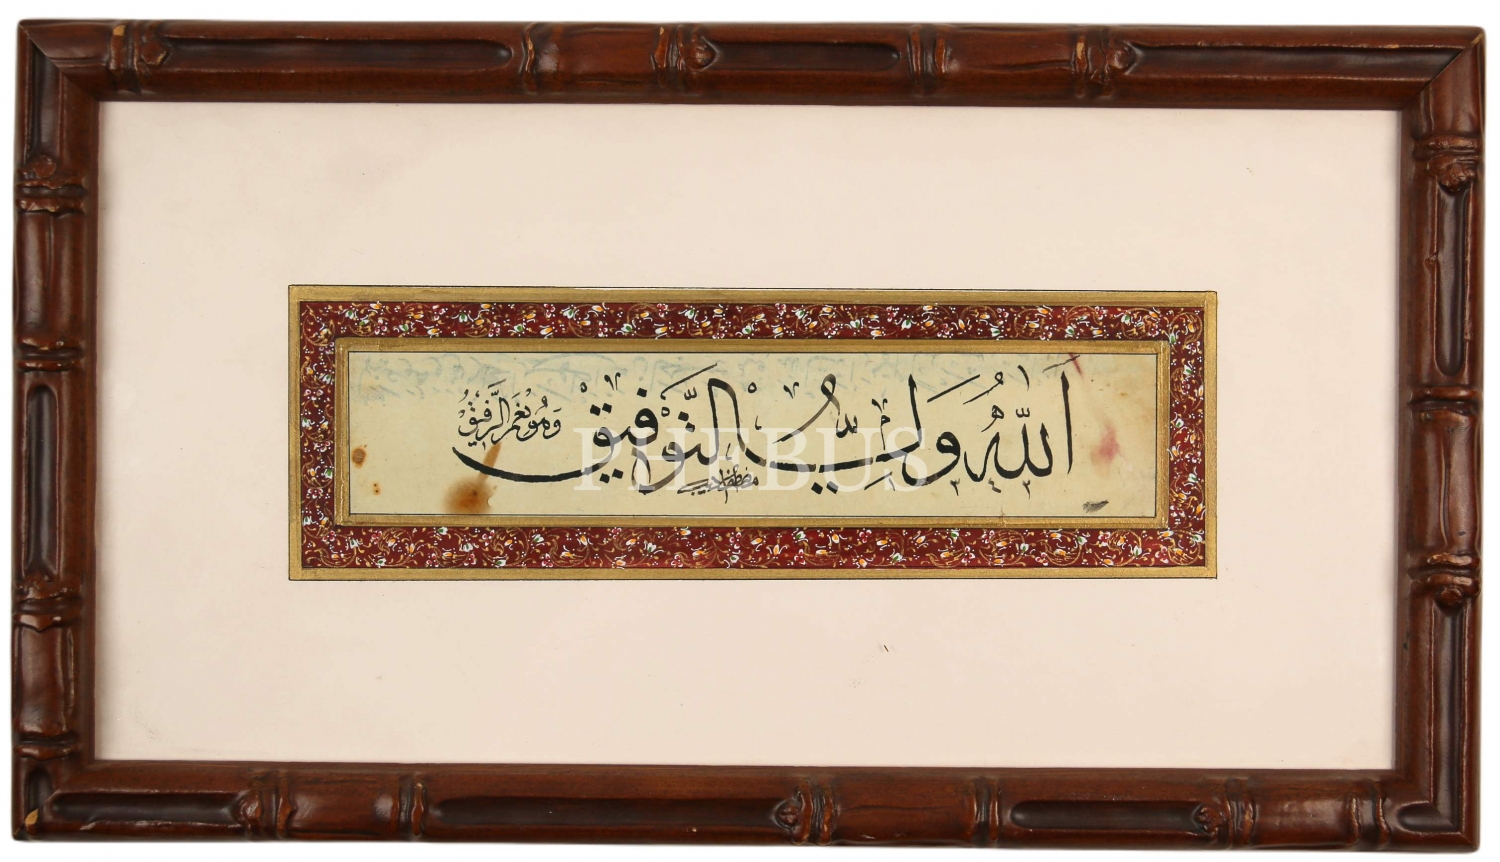 اَللّٰهُ وَلِيُّ التَّوْفِيقِ
وَهُوَ نِعْمَ الرَّفِيقُ
PHEBUS